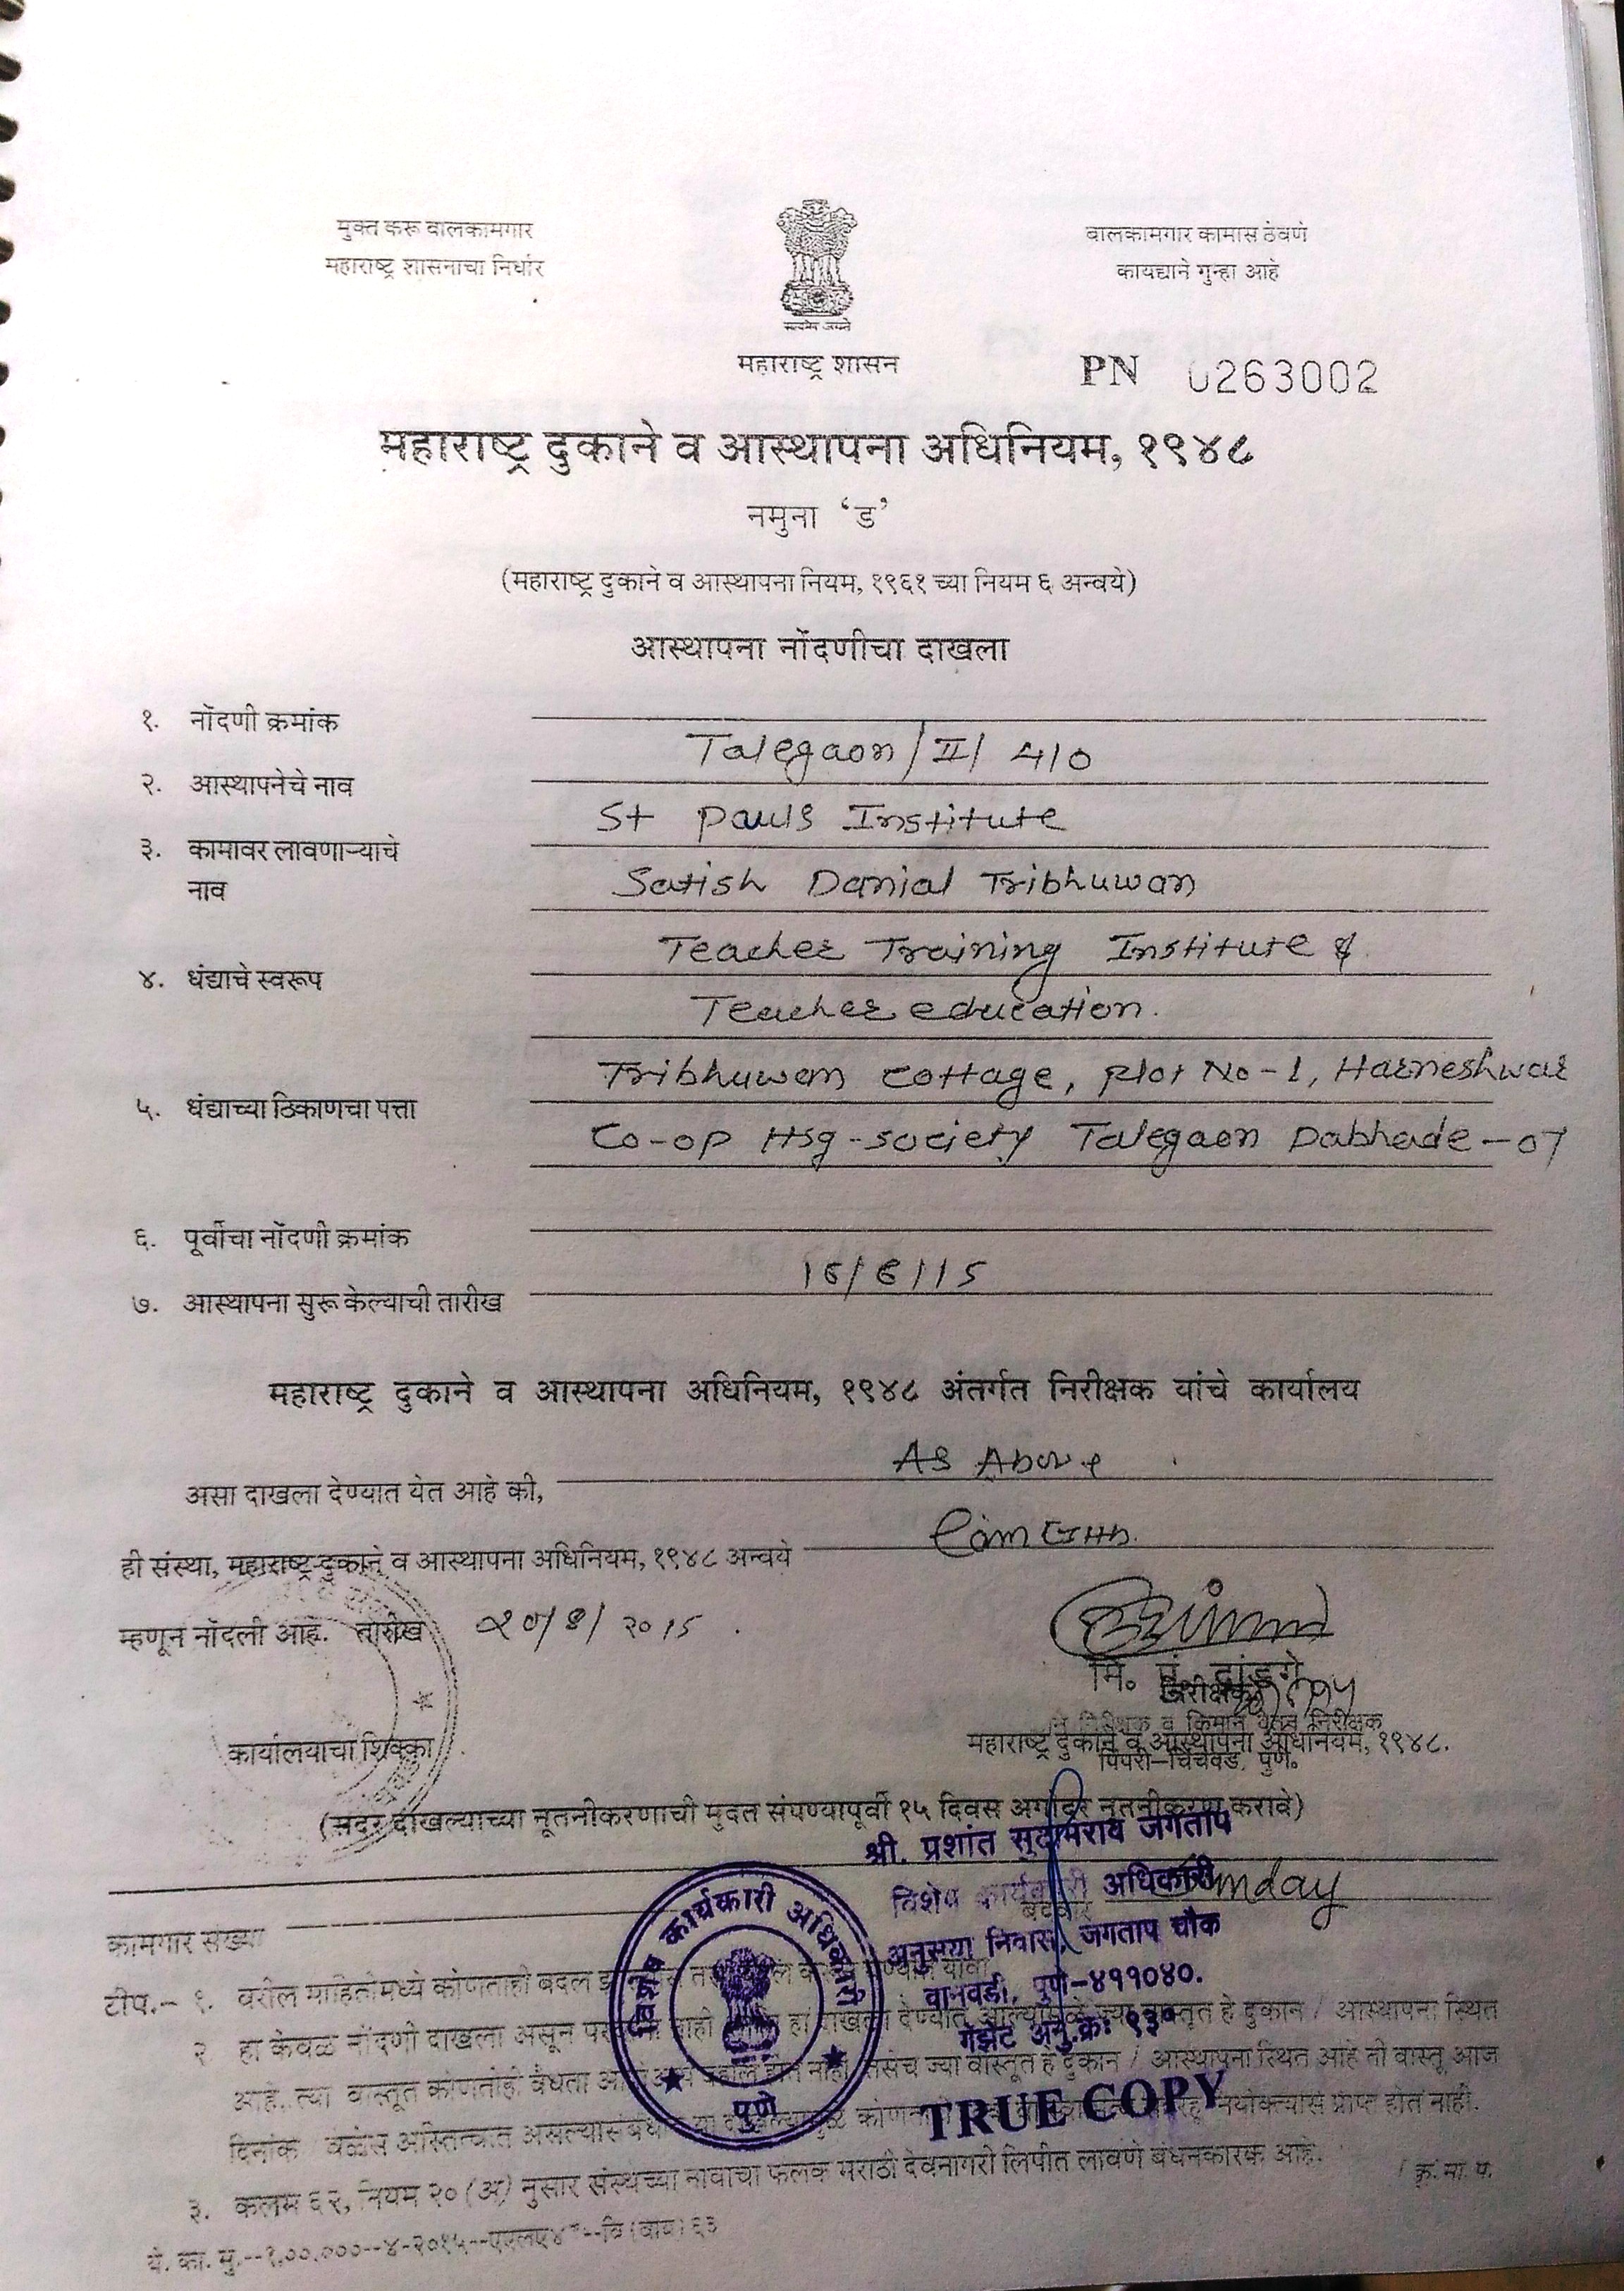 मुक्त करू बालकामगार
महाराष्ट्र शासनाचा निर्धार
बालकामगार कामास ठेवणे
कायद्याने गुन्हा आहे
सत्यमेव जयते
महाराष्ट्र शासन
PN 0263002
महाराष्ट्र दुकाने व आस्थापना अधिनियम, १९४८
नमुना ‘ड’
(महाराष्ट्र दुकाने व आस्थापना नियम, १९६१ च्या नियम ६ अन्वये)
आस्थापना नोंदणीचा दाखला
१. नोंदणी क्रमांक
Talegaon/II/ 410
२. आस्थापनेचे नाव
St Pauls Institute
३. कामावर लावणाऱ्याचे
नाव
Satish Danial Tribhuwan
Teacher Training Institute &
४. धंद्याचे स्वरूप
Teacher education.
Tribhuwan cottage, Plot No-1, Harneshwar
५. धंद्याच्या ठिकाणचा पत्ता
Co-op Hsg-society Talegaon Dabhade-07
६. पूर्वीचा नोंदणी क्रमांक
16/6/15
७. आस्थापना सुरू केल्याची तारीख
महाराष्ट्र दुकाने व आस्थापना अधिनियम, १९४८ अंतर्गत निरीक्षक यांचे कार्यालय
As Above
असा दाखला देण्यात येत आहे की,
ही संस्था, महाराष्ट्र दुकाने व आस्थापना अधिनियम, १९४८ अन्वये
म्हणून नोंदली आहे. तारीख 20/8/2015
निरीक्षक
कार्यालयाचा शिक्का
महाराष्ट्र दुकाने व आस्थापना अधिनियम, १९४८.
पिंपरी-चिंचवड, पुणे.
(सदर दाखल्याच्या नूतनीकरणाची मुदत संपण्यापूर्वी १५ दिवस अगोदर नूतनीकरण करावे)
श्री. प्रशांत सुदामराव जगताप
विशेष कार्यकारी अधिकारी
अनुसया निवास, जगताप चौक
वानवडी, पुणे-४११०४०.
गॅझेट अनु.क्रः ९३०
TRUE COPY
विशेष कार्यकारी अधिकारी
पुणे
कामगार संख्या
टीप.- १. वरील माहितीमध्ये कोणताही बदल
२. हा केवळ नोंदणी दाखला असून हे दुकान / आस्थापना स्थित
आहे, त्या वास्तूत कोणतीही वैधता नाही तसेच ज्या वास्तूत हे दुकान / आस्थापना स्थित आहे ती वास्तू आज
दिनांक वेळेस अस्तित्वात प्राप्त होत नाही.
३. कलम ६२, नियम २० (अ) नुसार संस्थेच्या नावाचा फलक मराठी देवनागरी लिपीत लावणे बंधनकारक आहे.
(कृ. मा. प.
ये. का. मु.--१,००,०००--४-२०१५--